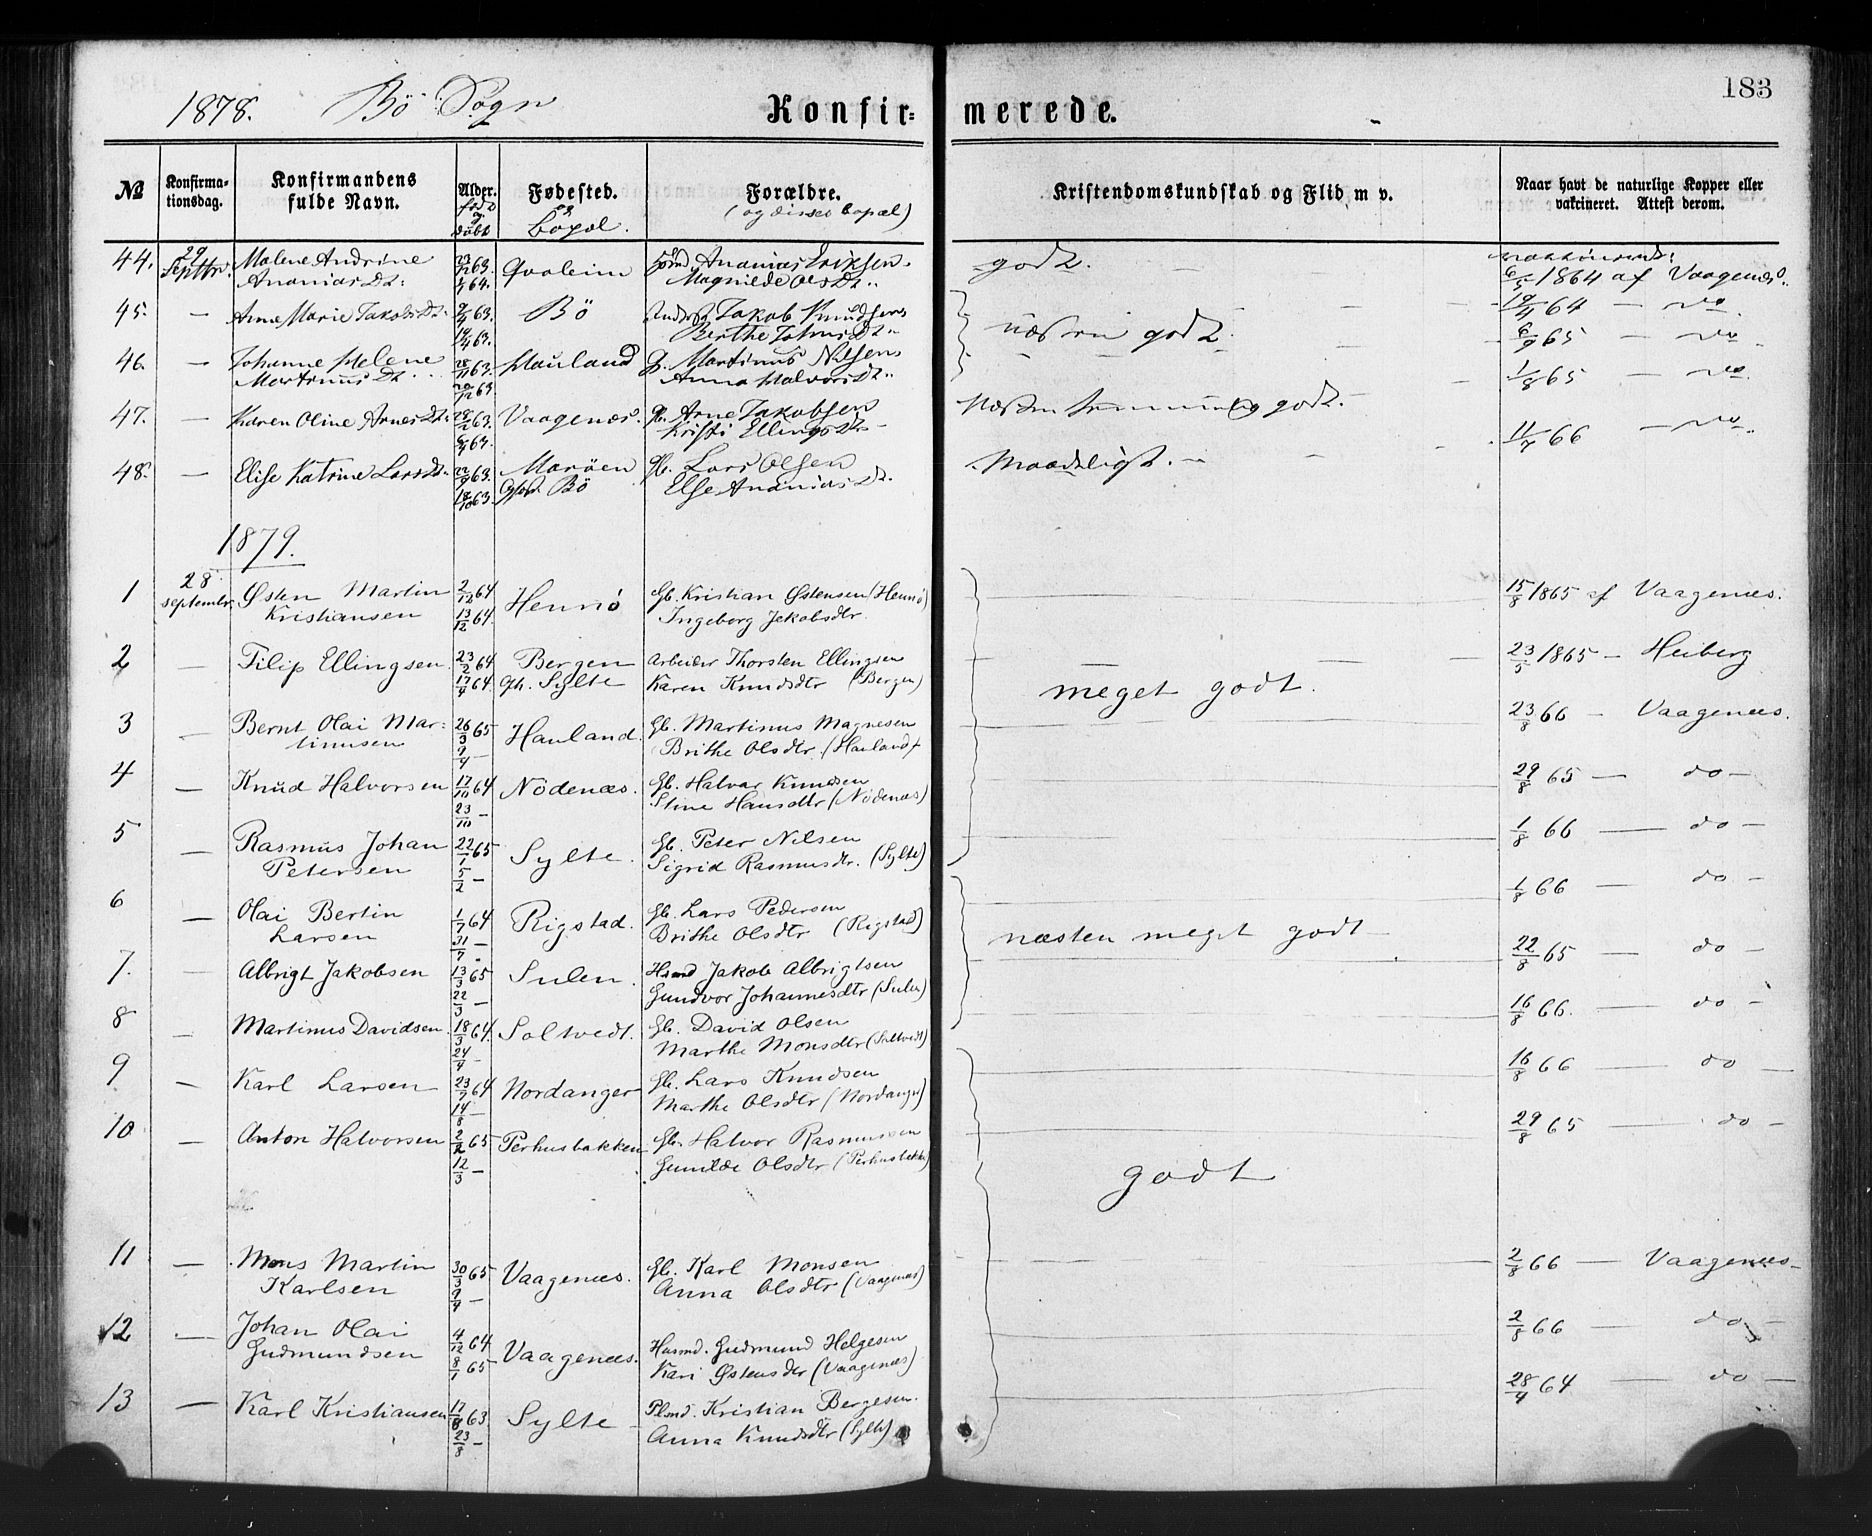 183
1878. Bö Sogn Konfirmerede.
№ Konfirmationsdag. Konfirmandens fulde Navn. Alder. født og döbt Fødested. og bopæl. Forældre. (og disses bopæl) Kristendomskundskab og Flid m v. Naar havt de naturlige Kopper eller vakcineret. Attest derom.
44. 29 Septbr. Malene Andrine 23/12 63. Qvaleim Ananias Eriksen godt.
AnaniasDt: Magnilde OlsDt.. 6/5 1864 af Vaagenæs.
45. — Anna Marie JakobsDt. 63. Bö Jakob Knudsen 19/4 64 — do
Berthe JohnsDt næsten godt.
46. — Johanne Helene 28/11 63. Hauland G. Martinus Nilsen 6/9 65 — do
MartinusDt. Anna HalvorsDt..
47. — Karen Oline ArnesDt. 28/2 63. Vaagenæs. Gb. Arne Jakobsen godt. 1/8 65 — do
Kristi EllingsDt
48. — Elise Katrine LarsDt. 22/9 63. Maröen Gb. Lars Olsen Maadeligt. 11/7 66 — do
18/10 63. Bö Else AnaniasDt.
1879.
1 28 septembr. Østen Martin 2/12 64 Hennö Gb. Kristian Østensen (Hennö) 15/8 1865 af Vaagenæs.
Kristiansen 13/12 64. Ingeborg Jakobsdtr.
2 — Filip Ellingsen 23/2 64 Bergen Arbeider Thorsten Ellingsen 23/5 1865 — Heiberg
17/4 64. Oph. Sylte Karen Knudsdtr (Bergen) meget godt.
3 — Bernt Olai Mar- 26/3 65 Hauland. Gb. Martinus Magnesen 23/8 66 — Vaagenæs.
tinusen 9/4 — Brithe Olsdtr. (Hauland)
4 — Knud Halvorsen 17/10 64 Nödenæs. Gb. Halvar Knudsen 29/8 65 — do —
23/10 — Stine Hansdtr (Nödenæs)
5 — Rasmus Johan 22/1 65 Sylte. Gb. Peter Nilsen 1/8 66 — do —
Petersen 5/2 — Sigrid Rasmusdtr. (Sylte)
6 — Olai Bertin 1/7 64 Rigstad. Gb. Lars Pedersen 1/8 66 — do —
Larsen 31/7 — Brithe Olsdtr (Rigstad) næsten meget godt —
7. — Albrigt Jakobsen 13/3 65 Sulen. Hsmd Jakob Albrigtsen 22/8 65 — do —
22/3 — Gundvor Johannesdtr (Sulen)
8 — Martinus Davidsen 18/3 64. Soltvedt. Gb. David Olsen 16/8 66. — do —
24/4 — Marthe Monsdtr (Soltvedt)
9 — Karl Larsen 23/7 64 Nordanger Gb. Lars Knudsen 16/8 66 — do —
14/8 — Marthe Olsdtr (Nordanger)
10 — Anton Halvorsen 2/2 65 Perhusbakken Gb. Halvor Rasmussen 29/8 65 — do —
12/3 — Gunilde Olsdtr (Perhusbakk) godt
11 — Mons Martin 30/3 65 Vaagenæs. Gb. Karl Monsen 2/8 66 — Vaagenæs —
Karlsen 9/4 — Anna Olsdtr (Vaagenæs)
12 — Johan Olai 4/12 64 Vaagenæs. Husmd. Gudmund Helgesen 2/8 66 — do —
Gudmundsen 8/1 65 Kari Østensdtr (Vaagenæs)
13 — Karl Kristiansen 17/8 63 Sylte — Plsmd. Kristian Bergesen. 28/4 64 — do —
23/8 — Anna Knudsdtr (Sylte)